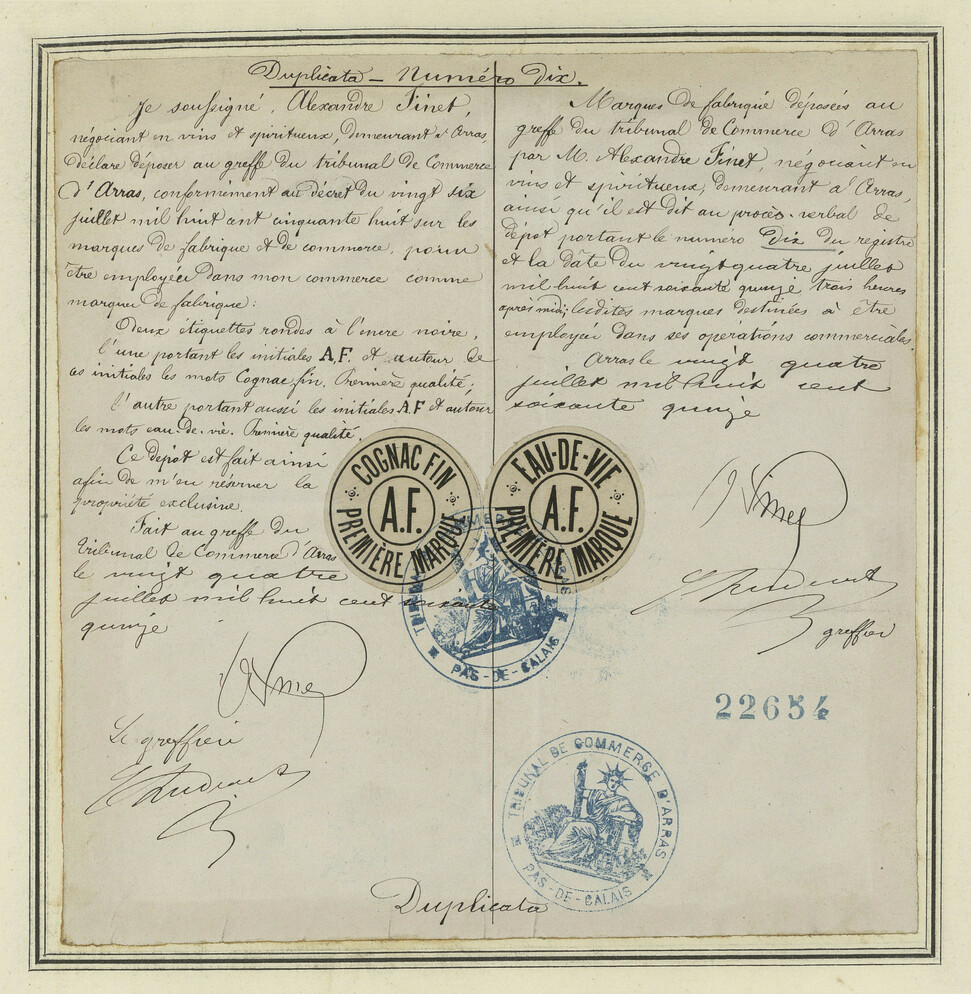 Duplicata – Numéro Dix.
Je soussigné, Alexandre Finet,
négociant en vins et spiritueux, demeurant à Arras,
déclare déposer au greffe du tribunal de Commerce
d'Arras, conformément au décret du vingt six
juillet mil huit cent cinquante huit sur les
marques de fabrique et de commerce, pour
être employées dans mon commerce comme
marques de fabrique :
Deux étiquettes rondes à l'encre noire,
l'une portant les initiales A.F. et autour de
ces initiales les mots Cognac fin. Première qualité ;
l'autre portant aussi les initiales A.F et autour
les mots eau-de-vie. Première qualité.
Ce dépôt est fait ainsi
afin de m'en réserver la
propriété exclusive.
Fait au greffe du
tribunal de Commerce d'Arras
le vingt quatre
juillet mil huit cent soixante
quinze
Le greffier
Marques de fabrique déposées au
greffe du tribunal de Commerce d'Arras
par M. Alexandre Finet, négociant en
vins et spiritueux, demeurant à Arras,
ainsi qu'il est dit au procès-verbal de
dépôt portant le numéro Dix du registre
et la date du vingt quatre juillet
mil huit cent soixante quinze trois heures
après midi ; lesdites marques destinées à être
employées dans ses opérations commerciales.
Arras le vingt quatre
juillet mil huit cent
soixante quinze
greffier
COGNAC FIN
A.F.
PREMIÈRE MARQUE
EAU-DE-VIE
A.F.
PREMIÈRE MARQUE
PAS-DE-CALAIS
22654
TRIBUNAL DE COMMERCE D'ARRAS
PAS-DE-CALAIS
Duplicata